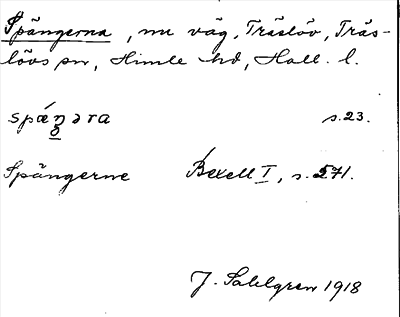 Spängerna, nu väg, Träslöv, Träs-
lövs sn, Himle hd, Hall. l.
spǽŋ̥əra s.23.
Spängerne Bexell I, s. 571.
J. Sahlgren 1918